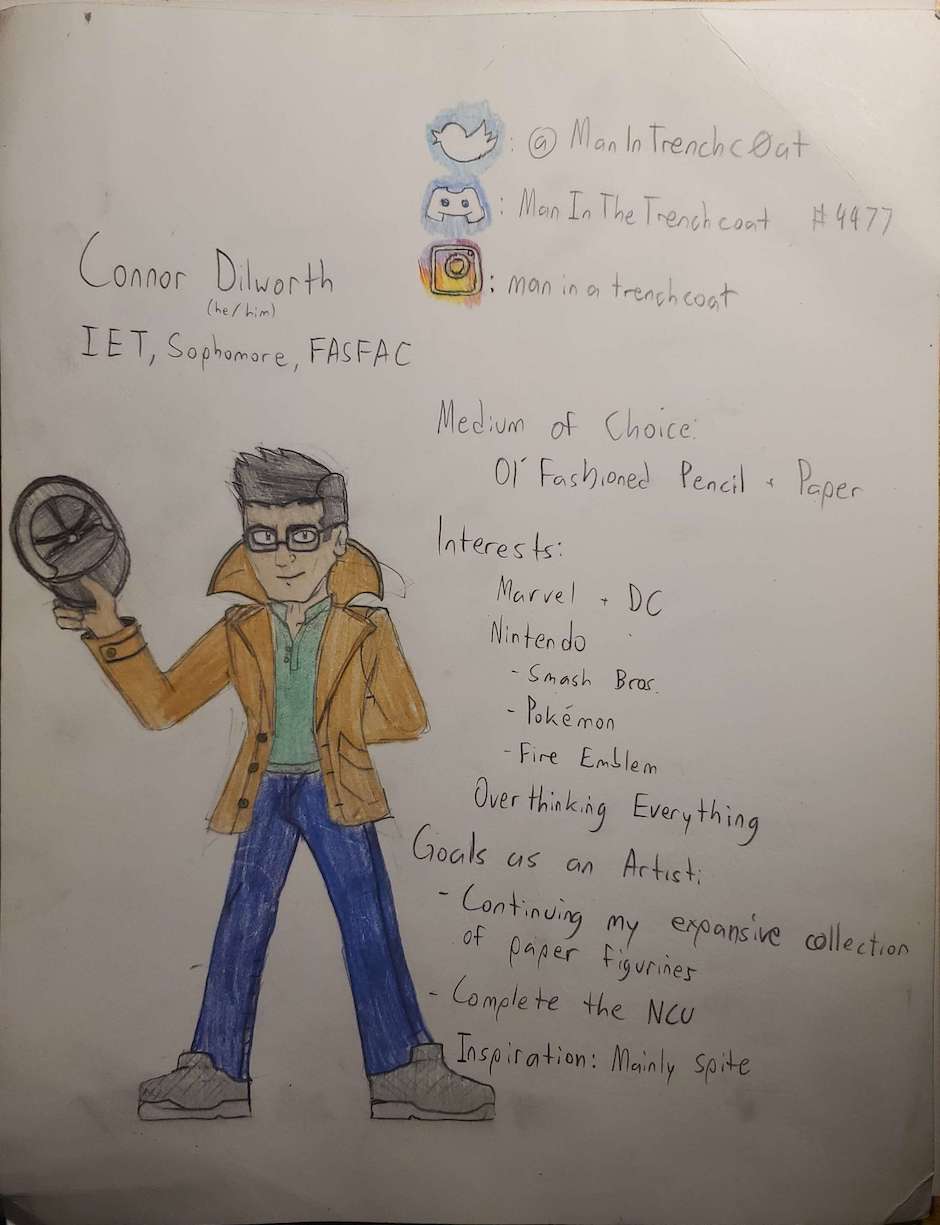 : @ManInTrenchc0at
: ManInTheTrenchcoat #4477
: maninatrenchcoat
Connor Dilworth
(he/him)
IET, Sophomore, FASFAC
Medium of Choice:
Ol' Fashioned Pencil + Paper
Interests:
Marvel + DC
Nintendo
- Smash Bros.
- Pokémon
- Fire Emblem
Overthinking Everything
Goals as an Artist:
- Continuing my expansive collection
of paper figurines
- Complete the NCU
Inspiration: Mainly spite